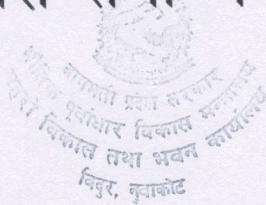 बागमती प्रदेश सरकार
भौतिक पूर्वाधार विकास मन्त्रालय
शहरी विकास तथा भवन कार्यालय
विदुर, नुवाकोट